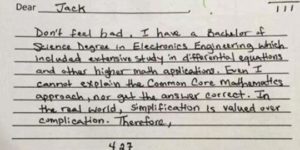 Dear Jack
Don't feel bad. I have a Bachelor of
Science Degree in Electronics Engineering which
included extensive study in differential equations
and other higher math applications. Even I
cannot explain the Common Core mathematics
approach, nor get the answer correct. In
the real world, simplification is valued over
complication. Therefore,
427